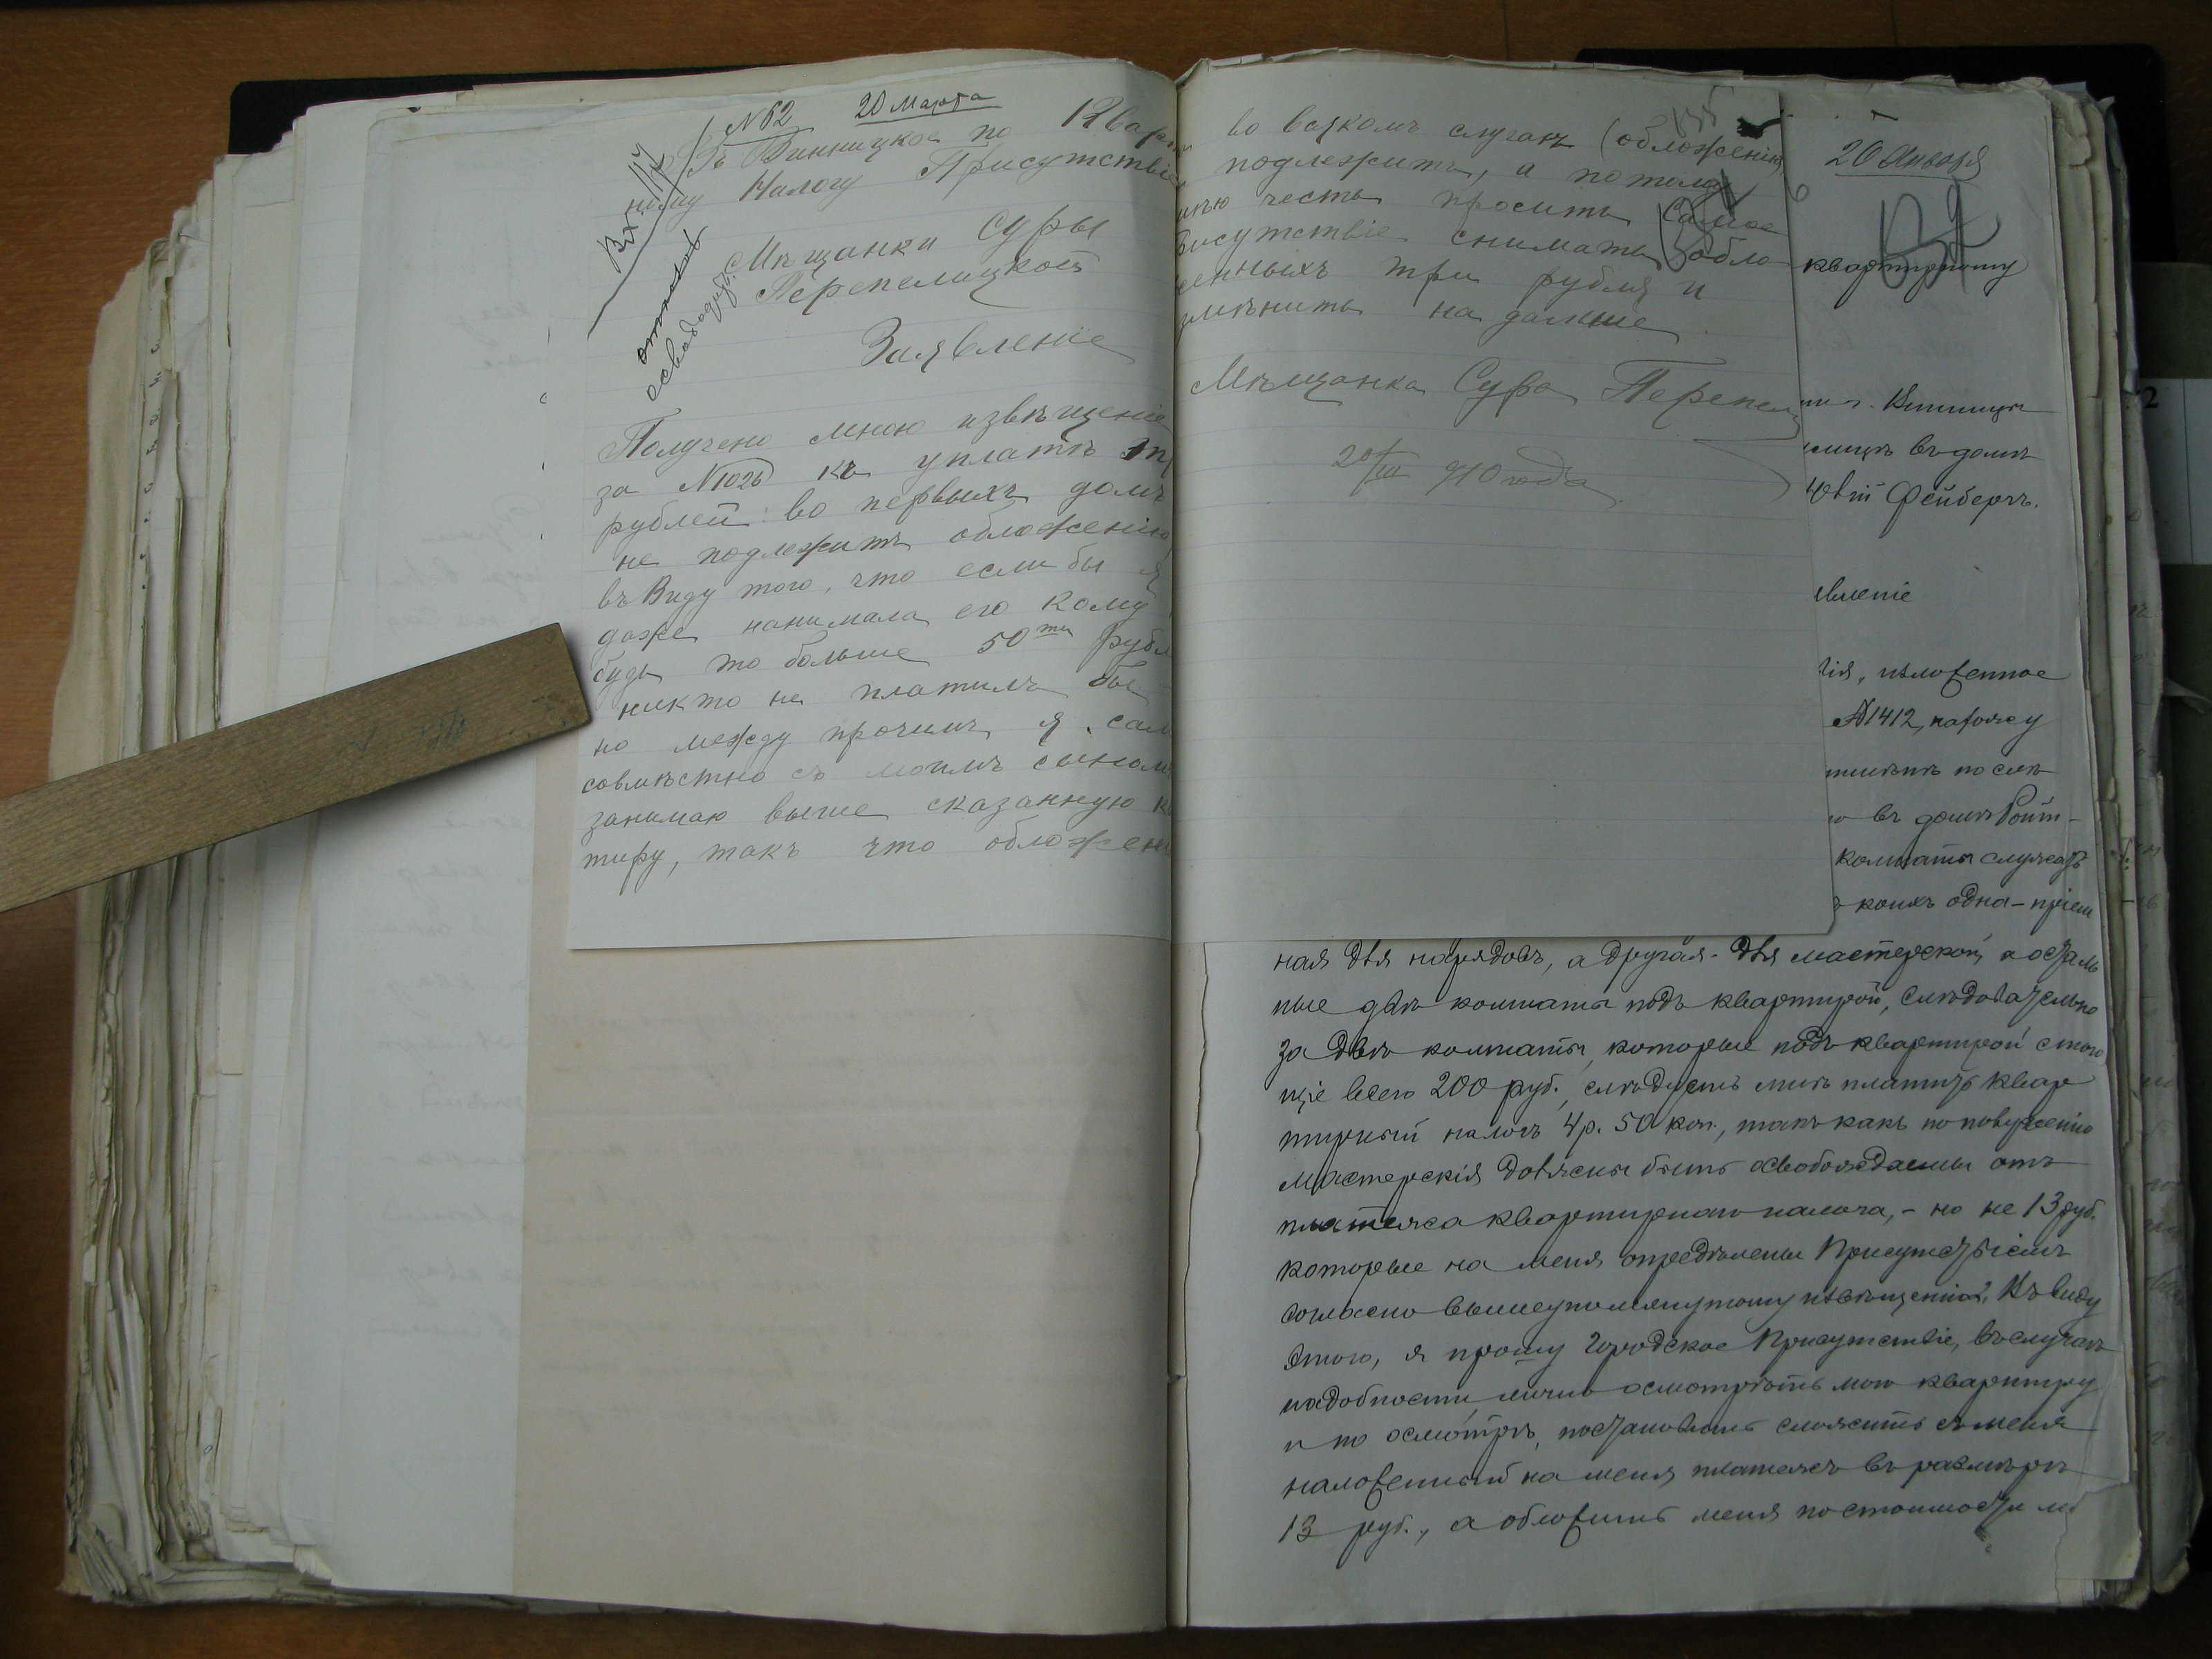 №62 20 Марта
Въ Винницкое по Квар
ному Налогу Присутствіе
Вх.
освободить
Мѣщанки Суры
Перепелицкой
Заявленіе
Получено мною извѣщеніе
за №1026 къ уплатѣ
рублей: во первыхъ домъ
не подлежитъ обложенію
въ Виду того, что если бы я
даже нанимала его кому
будь то больше 50ти рубл
никто не платилъ бы
но между прочимъ я сам
совмѣстно съ моимъ сыномъ
занимаю выше сказанную к
тиру, такъ что обложен
во всякомъ случаѣ (обложенію)
подлежитъ, а потому
имѣю честь просить
Присутствіе снимать обло
женныхъ три рубля и
змѣнить на дальше
Мѣщанка Сура Перепели
20/III 910 года
20 Января
квартирному
г. Винницы
въ домѣ
Фейбергъ.
явленіе
ія, изложенное
№1412, нахожу
въ домѣ Ройт-
комнаты служатъ
коихъ одна - пріем
ная для нарядовъ, а другая - для мастерской, а осталь
ные двѣ комнаты подъ квартирой, слѣдовательно
за двѣ комнаты, которые подъ квартирой стою
щіе всего 200 руб., слѣдуетъ мнѣ платить квар
тирный налогъ 4 р. 50 коп., такъ какъ по
мастерскія должны быть освобождаемы отъ
платежа квартирнаго налога, - но не 13 руб.
которые на меня опредѣлены Присутствіемъ
согласно вышеупомянутому извѣщенію. Въ виду
этого, я прошу Городское Присутствіе, въ случаѣ
надобности, лично осмотрѣть мою квартиру
и по осмотрѣ, постановить сложить съ меня
наложенный на меня платежъ въ размѣрѣ
13 руб., а обложить меня по стоимости